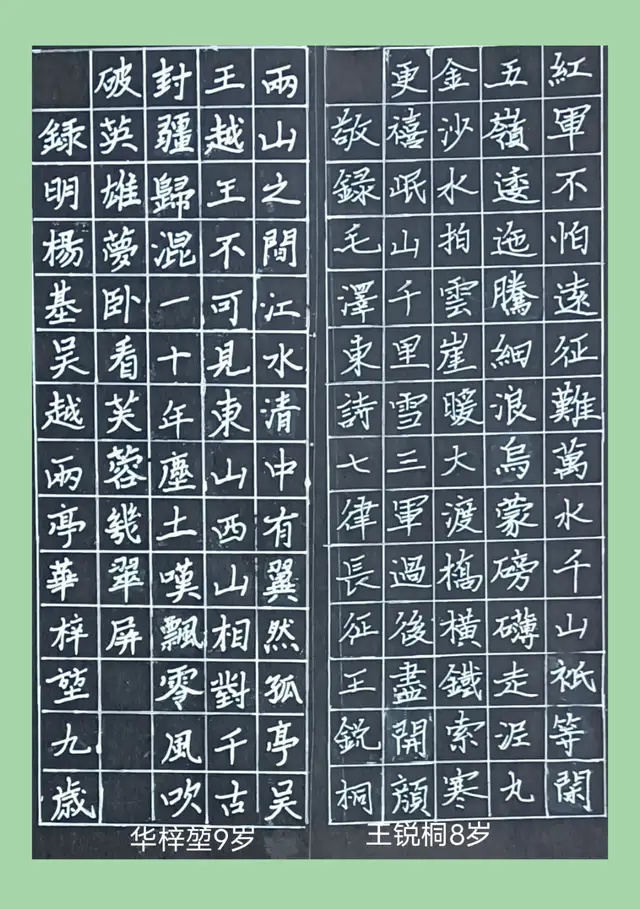 紅軍不怕遠征難萬水千山祇等閑
五嶺逶迤騰細浪烏蒙磅礴走泥丸
金沙水拍雲崖暖大渡橋橫鐵索寒
更禧岷山千里雪三軍過後盡開顔
敬録毛澤東詩七律長征王鋭桐
兩山之間江水清中有翼然孤亭吴
王越王不可見東山西山相對千古
封疆歸混一十年塵土嘆飄零風吹
破英雄夢卧看芙蓉幾翠屏
録明楊基吴越兩亭華梓堃九歲
华梓堃9岁
王锐桐8岁